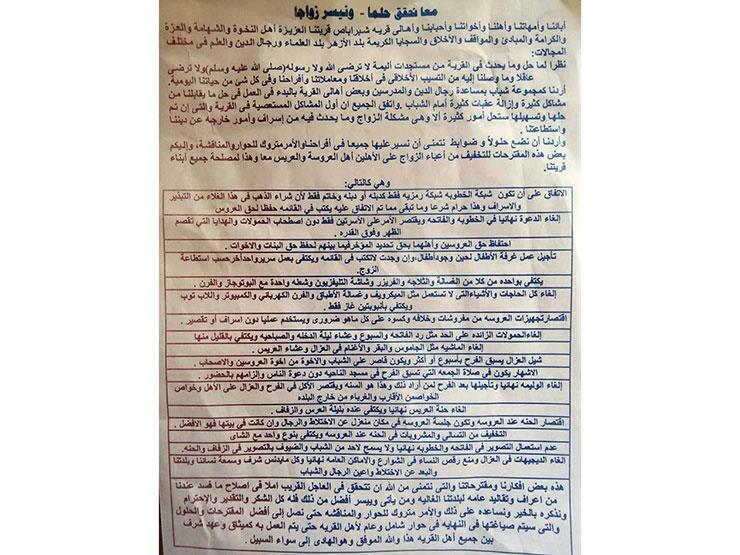 معا نحقق حلما - ونيسر زواجا
أبائنا وأمهاتنا وأهلنا وأخواتنا وأحبابنا وأهالى قريه شبراباص قريتنا العزيزة أهل النخوة والشهامة والعزة
والكرامة والمبادئ والمواقف والأخلاق والسجايا الكريمة بلد الأزهر بلد العلماء ورجال الدين والعلم فى مختلف
المجالات:
نظرا لما حل وما يحدث فى القرية من مستجدات أليمة لا ترضى الله ولا رسوله(صلى الله عليه وسلم)ولا ترضى
عاقلا وما وصلنا إليه من التسيب الأخلاقى فى أخلاقنا ومعاملاتنا وأفراحنا وفى كل شئ من حياتنا اليومية.
أردنا كمجموعة شباب بمساعدة رجال الدين والمدرسين وبعض أهالى القرية بالبدء فى العمل فى حل ما يقابلنا من
مشاكل كثيرة وإزالة عقبات كثيرة أمام الشباب .واتفق الجميع أن أول المشاكل المستعصية فى القرية والتى إن تم
حلها وتسهيلها ستحل أمور كثيرة ألا وهى مشكلة الزواج وما يحدث فيه من إسراف وأمور خارجه عن ديننا
واستطاعتنا .
وأردنا أن نضع حلولاً و ضوابط نتمنى أن نسير عليها جميعا فى أفراحناوالأمرمتروك للحواروالمناقشة، وإليكم
بعض هذه المقترحات للتخفيف من أعباء الزواج على الأهلين أهل العروسة والعريس معا وهذا لمصلحة جميع أبناء
قريتنا.
وهى كالتالي:
الاتفاق على أن تكون شبكة الخطوبه شبكة رمزيه فقط كدبله أو دبله وخاتم فقط لأن شراء الذهب فى هذا الغلاء من التبذير
والاسراف وهذا حرام شرعا وما تبقى مما تم الاتفاق عليه يكتب في القائمه حفظا لحق العروس
إلغاء الدعوة نهائيا في الخطوبه والفاتحه ويقتصر الأمرعلى الأسرتين فقط دون اصطحاب الحمولات والهدايا التي تقصم
الظهر وفوق القدره .
احتفاظ حق العروسين وأهلهما بحق تحديد المؤخرفيما بينهم لحفظ حق البنات والاخوات .
تأجيل عمل غرفة الأطفال لحين وجودأطفال،وإن وجدت لاتكتب فى القائمه ويكتفى بعمل سريرواحدأخرحسب استطاعة
الزوج.
يكتفى بواحده من كلا من الغسالة والثلاجه والفريزر وشاشة التليفزيون وشعله واحدة مع البوتوجاز والفرن .
إلغاء كل الحاجات والأشياءالتى لا تستعمل مثل الميكرويف وغسالة الأطباق والفرن الكهربائي والكمبيوتر واللاب توب
ويكتفي بأنبوبتين غاز فقط.
اقتصارتجهيزات العروسه من مفروشات وخلافه وكسوه على كل ماهو ضرورى ويستخدم عمليا دون اسراف أو تقصير .
إلغاءالحمولات الزائده على الحد مثل رد الفاتحه والسبوع وعشاء ليلة الدخله والصباحيه ويكتفي بالقليل منها
إلغاء الماشيه مثل الجاموس والبقر والأغنام في العزال وعشاء العريس .
شيل العزال يسبق الفرح بأسبوع أو أكثر ويكون قاصر على الشباب والاخوة من اخوة العروسين والاصحاب .
الاشهار يكون فى صلاة الجمعه التي تسبق الفرح فى مسجد الناحيه دون دعوة الناس وإلزامهم بالحضور .
إلغاء الوليمه نهائيا وتأجيلها بعد الفرح لمن أراد ذلك وهذا هو السنه ويقتصر الأكل في الفرح والعزال على الأهل وخواص
الخواصمن الأقارب والغرباء من خارج البلده
الغاء حنة العريس نهائيا ويكتفى عنده بليلة العرس والزفاف .
اقتصار الحنه عند العروسه وتكون جلسة العروسه في مكان منعزل عن الاختلاط والرجال وإن كانت في بيتها فهو الافضل .
التخفيف من التسالى والمشروبات فى الحنه عند العروسه ويكتفى بنوع واحد مع الشاى
عدم استعمال التصوير فى الفاتحه والخطوبه نهائيا ولا يسمح لاحد من الشباب والضيوف بالتصوير فى الزفاف والحنه.
الغاء الديجيهات فى العزال ومنع رقص النساء فى الشوارع والاماكن العامه نهائيا وكل مايدنس شرف وسمعة نسائنا وبلدتنا
والبعد عن الاختلاط واعين الرجال والشباب
هذه بعض أفكارنا ومقترحاتنا والتى نتمنى من الله ان تتحقق فى العاجل القريب املا فى اصلاح ما فسد عندنا
من اعراف وتقاليد عامه لبلدتنا الغاليه ومن يأتى وييسر أفضل من ذلك فله كل الشكر والتقدير والإحترام
ونذكره بالخير ونساعده على ذلك والأمر متروك للحوار والمناقشه حتى نصل إلى أفضل المقترحات والحلول
والتى سيتم صياغتها فى النهايه فى حوار شامل وعام لأهل القريه حتى يتم العمل به كميثاق وعهد شرف
بين جميع أهل القريه هذا والله الموفق وهوالهادى إلى سواء السبيل .